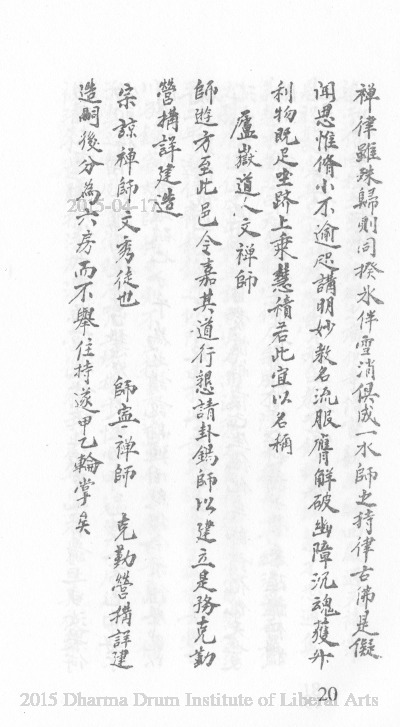 禅律雖殊歸則同揆氷伴雪消俱成一水師之持律古佛是儗
闻思惟脩小不逾咫講明妙教名流服膺解破幽障沉魂獲升
利物既足坐跻上乗慧積若此宜以名稱
廬嶽道人文禅師
師逰方至此邑令嘉其道行懇請卦錫師以建立是務克勤
營構詳建造
宗諒禅師文秀徒也 師寍禅師 克勤營構詳建
造嗣後分為六房而不舉住持遂甲乙輪掌矣
2015-04-17
20
2015 Dharma Drum Institute of Liberal Arts